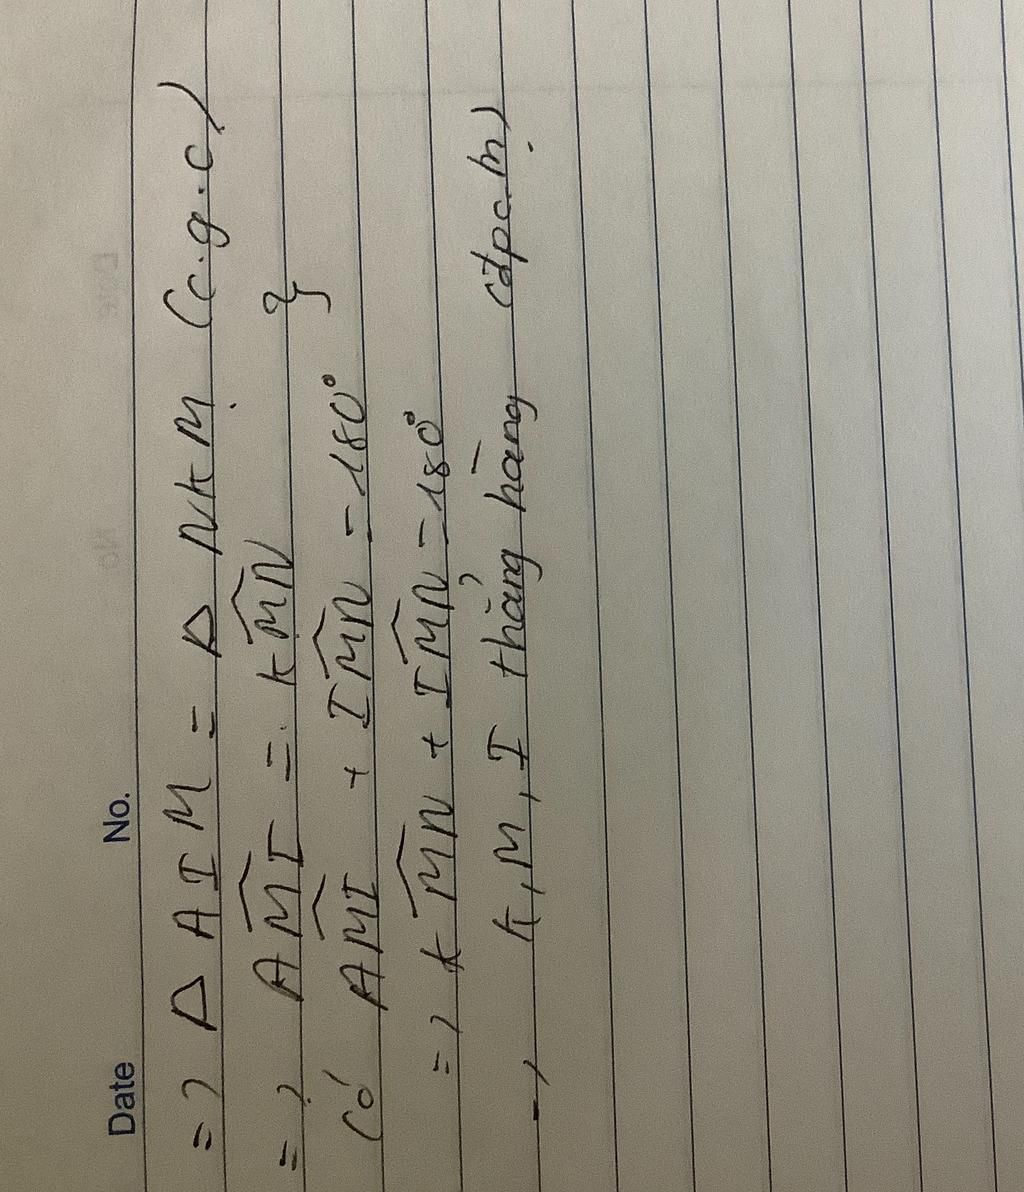 Date No.
=> Δ AIM = Δ NKM (c.g.c)
=> \widehat{AMI} = \widehat{KMN} }
Có \widehat{AMI} + \widehat{IMN} = 180°
=> \widehat{KMN} + \widehat{IMN} = 180°
=> K, M, I thẳng hàng (đpcm)